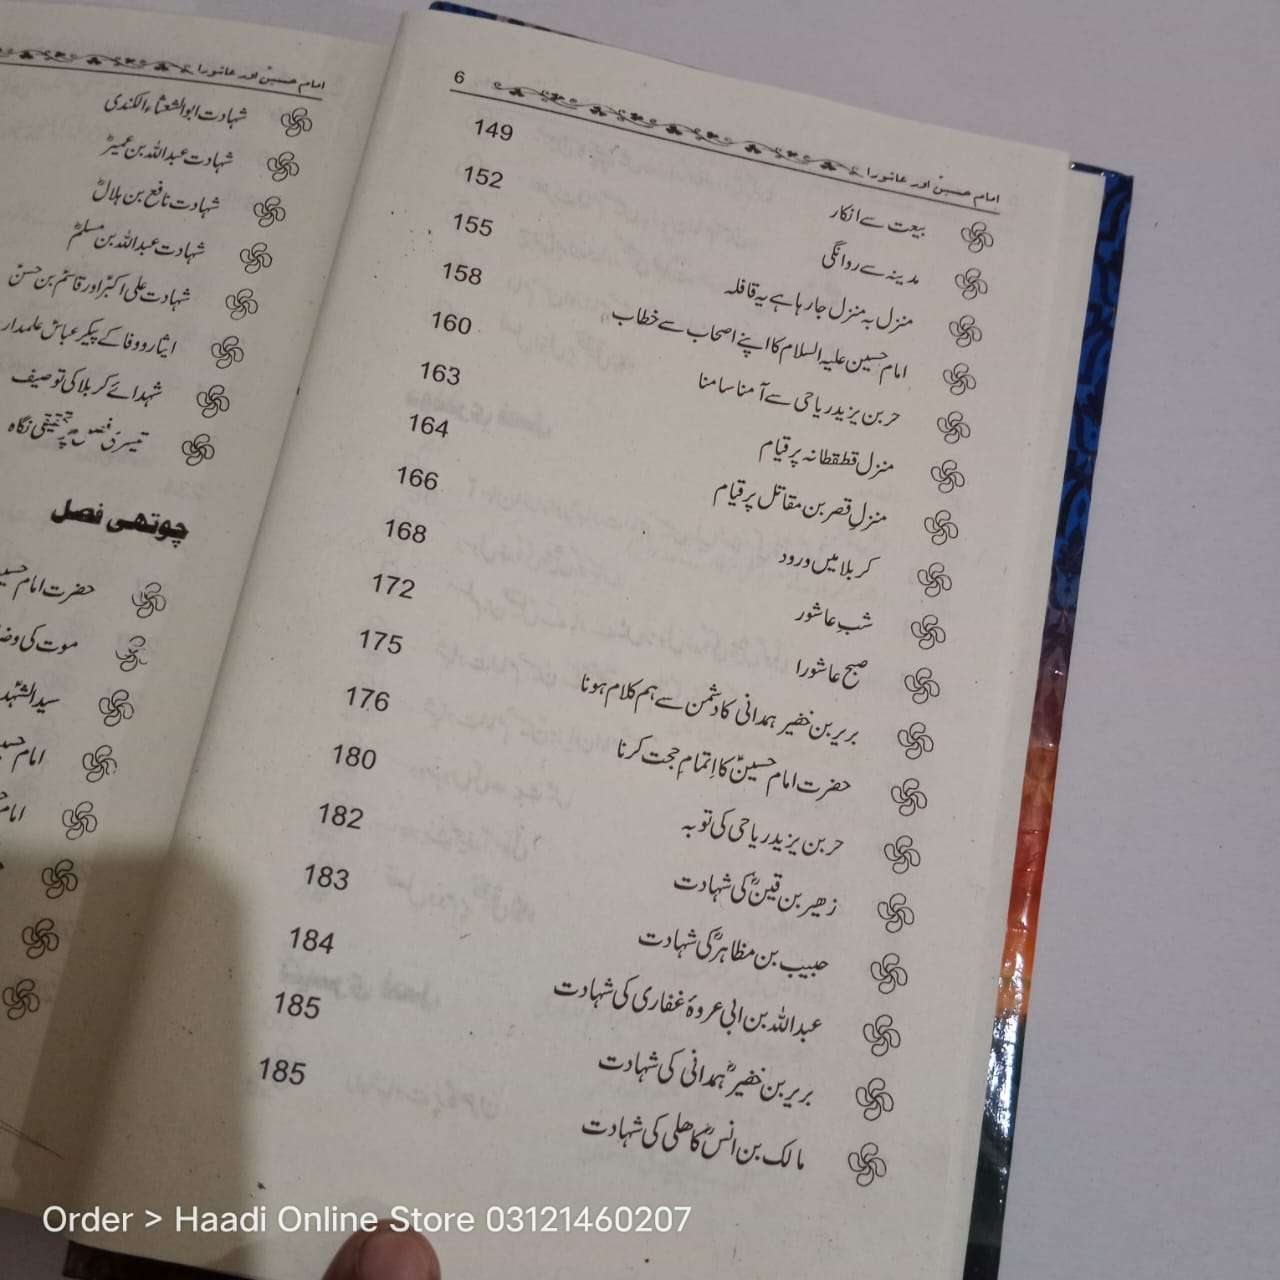 6
امام حسینؑ اور عاشورا
بیعت سے انکار 149
مدینہ سے روانگی 152
منزل بہ منزل جا رہا ہے یہ قافلہ 155
امام حسین علیہ السلام کا اپنے اصحاب سے خطاب 158
حر بن یزید ریاحی سے آمنا سامنا 160
منزل قطقطانہ پر قیام 163
منزلِ قصر بن مقاتل پر قیام 164
کربلا میں ورود 166
شبِ عاشور 168
صبح عاشورا 172
بریر بن خضیر ہمدانی کا دشمن سے ہم کلام ہونا 175
حضرت امام حسینؑ کا اِتمامِ حجت کرنا 176
حر بن یزید ریاحی کی توبہ 180
زھیر بن قینؓ کی شہادت 182
حبیب بن مظاہرؓ کی شہادت 183
عبداللہ بن ابی عروۂ غفاری کی شہادت 184
بریر بن خضیرؓ ہمدانی کی شہادت 185
مالک بن انسؓ کاھلی کی شہادت 185
امام حسینؑ اور عاشورا
شہادت ابوالشعثاء الکندی
شہادت عبداللہ بن عمیرؓ
شہادت نافع بن ہلالؓ
شہادت عبداللہ بن مسلمؓ
شہادت علی اکبرؑ اور قاسمؑ بن حسنؑ
ایثار و وفا کے پیکر عباسؑ علمدار
شہدائے کربلا کی توصیف
تیسری فصل پر تحقیقی نگاہ
چوتھی فصل
حضرت امام
موت کی
سید الشہد
امام
امام
Order > Haadi Online Store 03121460207